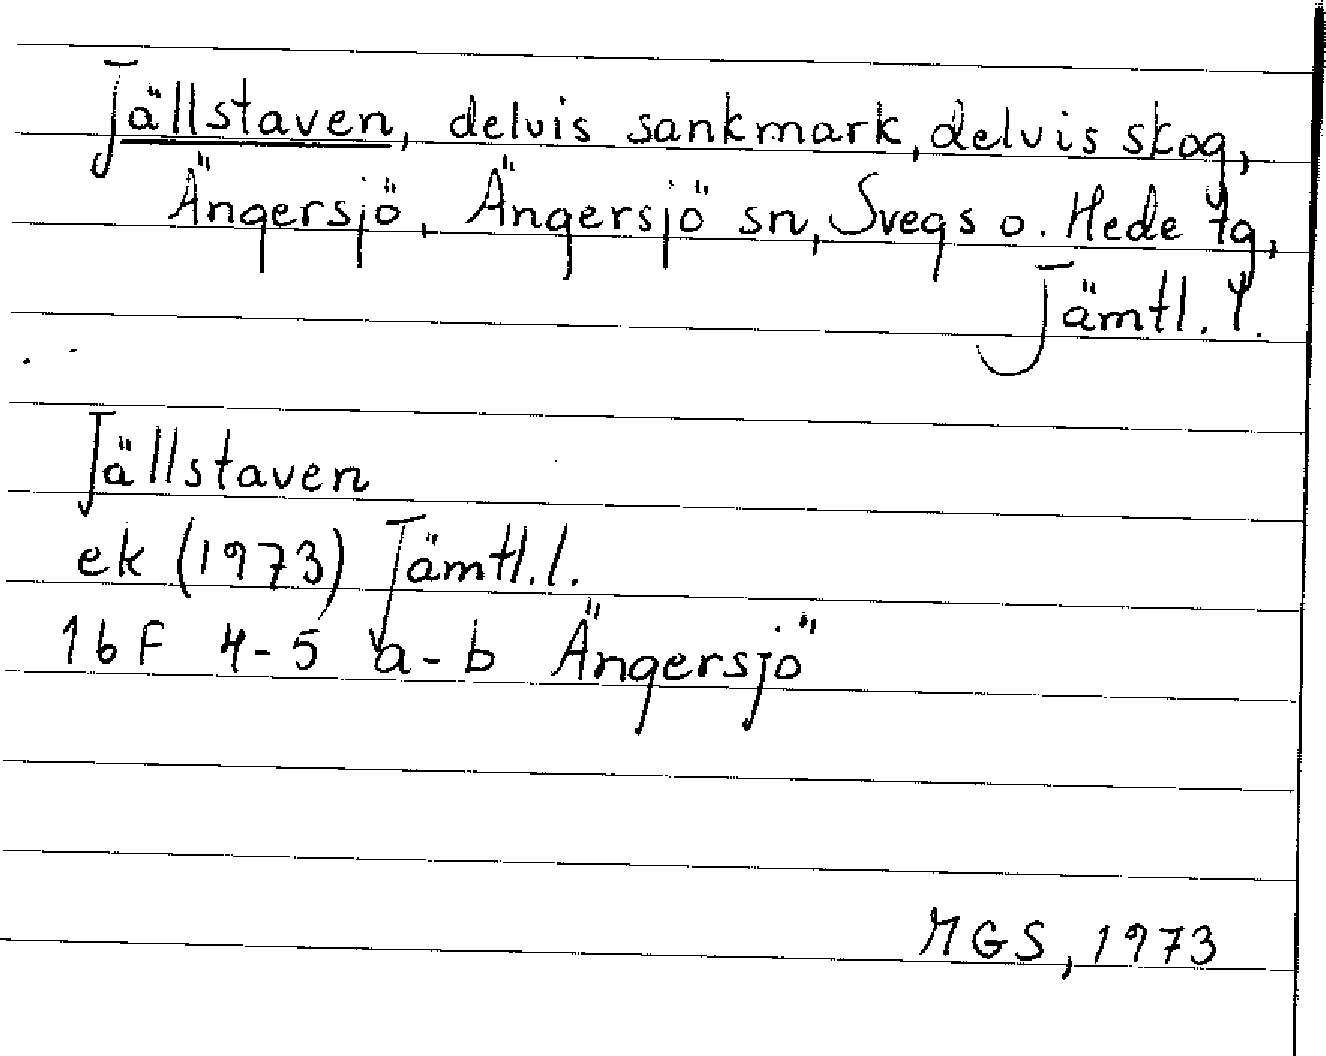 Jällstaven, delvis sankmark, delvis skog,
Ängersjö, Ängersjö sn, Svegs o. Hede tg,
Jämtl. l.
Jällstaven
ek (1973) Jämtl. l.
16F 4-5 a-b Ängersjö
MGS, 1973